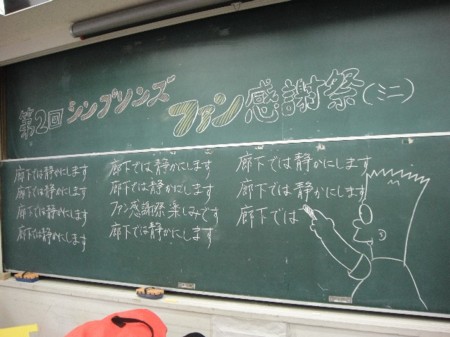 第2回 シンプソンズ
ファン感謝祭(ミニ)
廊下では静かにします
廊下では静かにします
廊下では静かにします
廊下では静かにします
廊下では静かにします
廊下では静かにします
ファン感謝祭楽しみです
廊下では静かにします
廊下では静かにします
廊下では静かにします
廊下では